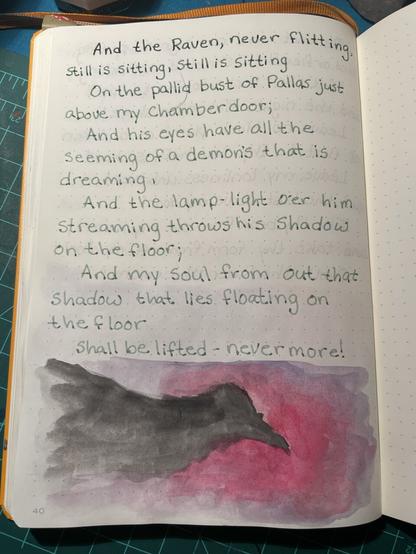 And the Raven, never flitting,
still is sitting, still is sitting
On the pallid bust of Pallas just
above my Chamber door;
And his eyes have all the
seeming of a demon's that is
dreaming,
And the lamp-light o'er him
streaming throws his shadow
on the floor;
And my soul from out that
shadow that lies floating on
the floor
Shall be lifted - never more!
40